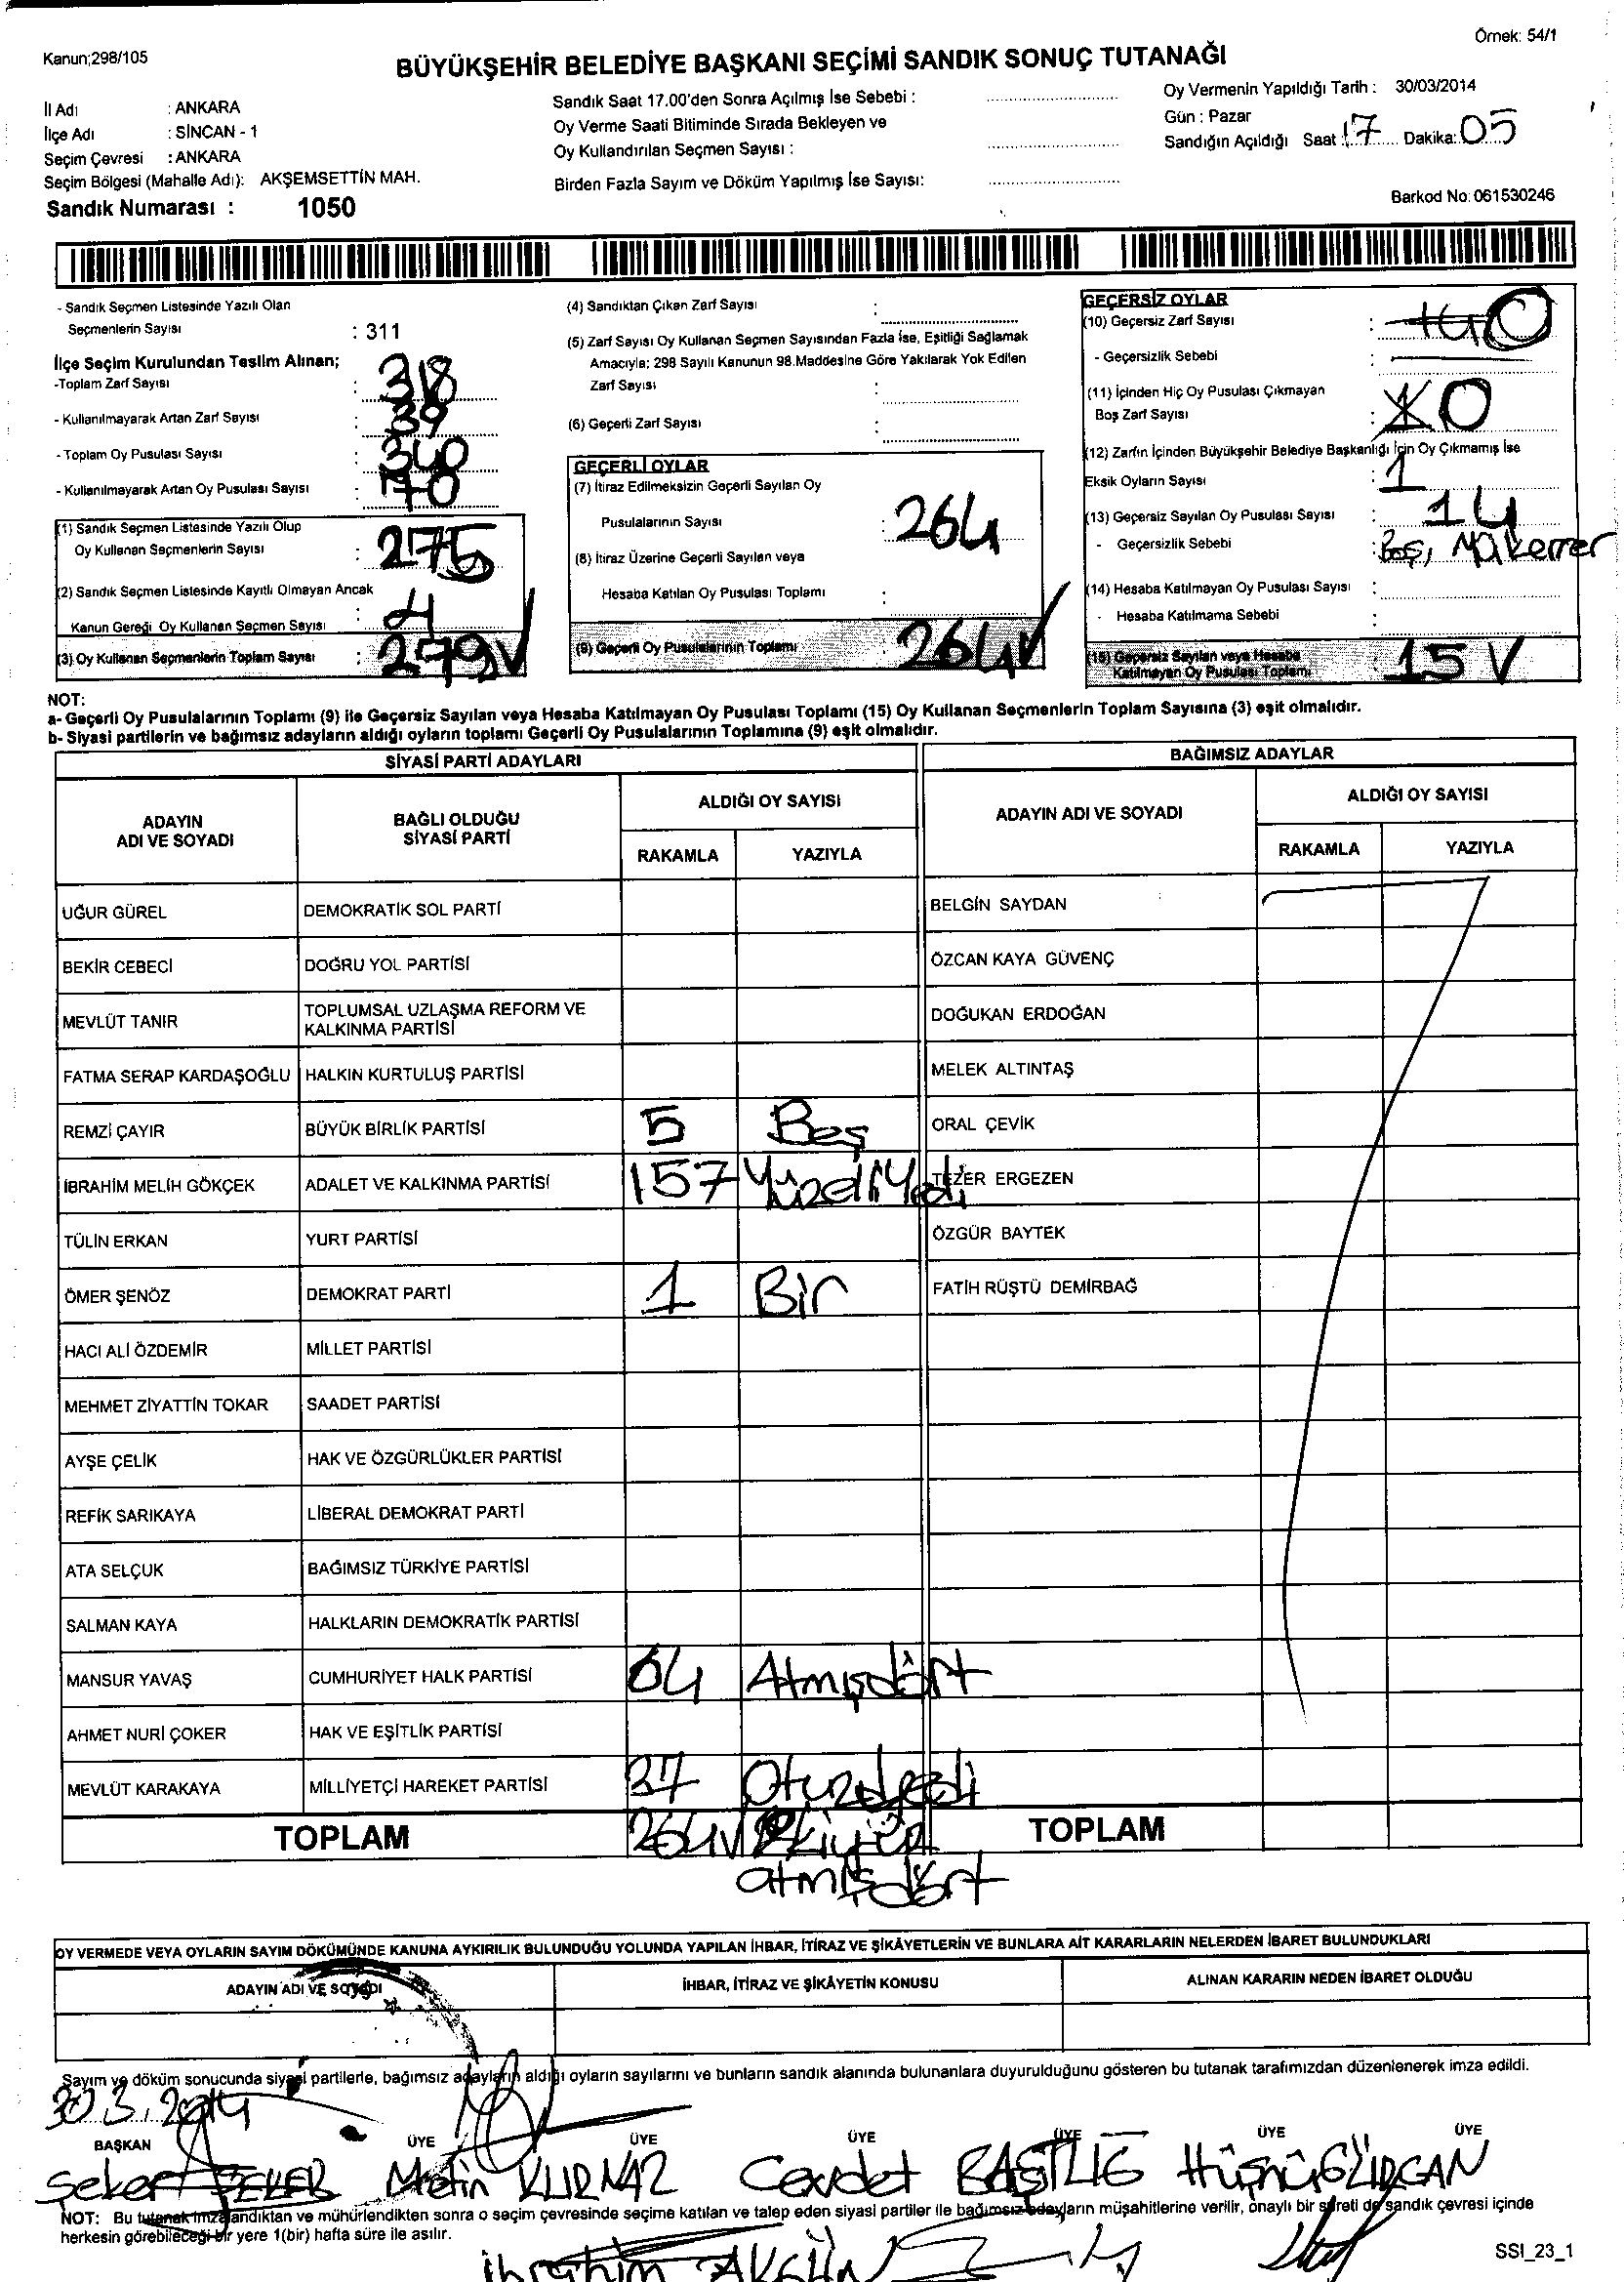 Örnek: 54/1
Kanun;298/105
BÜYÜKŞEHİR BELEDİYE BAŞKANI SEÇİMİ SANDIK SONUÇ TUTANAĞI
İl Adı : ANKARA
İlçe Adı : SİNCAN - 1
Seçim Çevresi : ANKARA
Seçim Bölgesi (Mahalle Adı): AKŞEMSETTİN MAH.
Sandık Numarası : 1050
Sandık Saat 17.00'den Sonra Açılmış İse Sebebi :
Oy Verme Saati Bitiminde Sırada Bekleyen ve
Oy Kullandırılan Seçmen Sayısı :
Birden Fazla Sayım ve Döküm Yapılmış İse Sayısı:
Oy Vermenin Yapıldığı Tarih : 30/03/2014
Gün : Pazar
Sandığın Açıldığı Saat : 17 Dakika: 05
Barkod No: 061530246
- Sandık Seçmen Listesinde Yazılı Olan
Seçmenlerin Sayısı : 311
İlçe Seçim Kurulundan Teslim Alınan;
-Toplam Zarf Sayısı : 318
- Kullanılmayarak Artan Zarf Sayısı : 39
- Toplam Oy Pusulası Sayısı : 340
- Kullanılmayarak Artan Oy Pusulası Sayısı :
(1) Sandık Seçmen Listesinde Yazılı Olup
Oy Kullanan Seçmenlerin Sayısı : 275
(2) Sandık Seçmen Listesinde Kayıtlı Olmayan Ancak
Kanun Gereği Oy Kullanan Seçmen Sayısı : 4
(3) Oy Kullanan Seçmenlerin Toplam Sayısı : 279
(4) Sandıktan Çıkan Zarf Sayısı :
(5) Zarf Sayısı Oy Kullanan Seçmen Sayısından Fazla İse, Eşitliği Sağlamak
Amacıyla; 298 Sayılı Kanunun 98.Maddesine Göre Yakılarak Yok Edilen
Zarf Sayısı :
(6) Geçerli Zarf Sayısı :
GEÇERLİ OYLAR
(7) İtiraz Edilmeksizin Geçerli Sayılan Oy
Pusulalarının Sayısı : 264
(8) İtiraz Üzerine Geçerli Sayılan veya
Hesaba Katılan Oy Pusulası Toplamı :
(9) Geçerli Oy Pusulalarının Toplamı : 264
GEÇERSİZ OYLAR
(10) Geçersiz Zarf Sayısı : 0
- Geçersizlik Sebebi :
(11) İçinden Hiç Oy Pusulası Çıkmayan
Boş Zarf Sayısı : 0
(12) Zarfın İçinden Büyükşehir Belediye Başkanlığı İçin Oy Çıkmamış İse
Eksik Oyların Sayısı : 1
(13) Geçersiz Sayılan Oy Pusulası Sayısı : 14
- Geçersizlik Sebebi : Boş, Mükerrer
(14) Hesaba Katılmayan Oy Pusulası Sayısı :
- Hesaba Katılmama Sebebi :
(15) Geçersiz Sayılan veya Hesaba
Katılmayan Oy Pusulası Toplamı : 15
NOT:
a- Geçerli Oy Pusulalarının Toplamı (9) ile Geçersiz Sayılan veya Hesaba Katılmayan Oy Pusulası Toplamı (15) Oy Kullanan Seçmenlerin Toplam Sayısına (3) eşit olmalıdır.
b- Siyasi partilerin ve bağımsız adayların aldığı oyların toplamı Geçerli Oy Pusulalarının Toplamına (9) eşit olmalıdır.
SİYASİ PARTİ ADAYLARI
ADAYIN ADI VE SOYADI
BAĞLI OLDUĞU SİYASİ PARTİ
ALDIĞI OY SAYISI
RAKAMLA YAZIYLA
UĞUR GÜREL DEMOKRATİK SOL PARTİ
BEKİR CEBECİ DOĞRU YOL PARTİSİ
MEVLÜT TANIR TOPLUMSAL UZLAŞMA REFORM VE KALKINMA PARTİSİ
FATMA SERAP KARDAŞOĞLU HALKIN KURTULUŞ PARTİSİ
REMZİ ÇAYIR BÜYÜK BİRLİK PARTİSİ 5 Beş
İBRAHİM MELİH GÖKÇEK ADALET VE KALKINMA PARTİSİ 157
TÜLİN ERKAN YURT PARTİSİ
ÖMER ŞENÖZ DEMOKRAT PARTİ 1 Bir
HACI ALİ ÖZDEMİR MİLLET PARTİSİ
MEHMET ZİYATTİN TOKAR SAADET PARTİSİ
AYŞE ÇELİK HAK VE ÖZGÜRLÜKLER PARTİSİ
REFİK SARIKAYA LİBERAL DEMOKRAT PARTİ
ATA SELÇUK BAĞIMSIZ TÜRKİYE PARTİSİ
SALMAN KAYA HALKLARIN DEMOKRATİK PARTİSİ
MANSUR YAVAŞ CUMHURİYET HALK PARTİSİ 64 Atmışdört
AHMET NURİ ÇOKER HAK VE EŞİTLİK PARTİSİ
MEVLÜT KARAKAYA MİLLİYETÇİ HAREKET PARTİSİ 37 Otuzdyedi
TOPLAM 264 İkiyüz
atmışdört
BAĞIMSIZ ADAYLAR
ADAYIN ADI VE SOYADI
ALDIĞI OY SAYISI
RAKAMLA YAZIYLA
BELGİN SAYDAN
ÖZCAN KAYA GÜVENÇ
DOĞUKAN ERDOĞAN
MELEK ALTINTAŞ
ORAL ÇEVİK
TEZER ERGEZEN
ÖZGÜR BAYTEK
FATİH RÜŞTÜ DEMİRBAĞ
TOPLAM
OY VERMEDE VEYA OYLARIN SAYIM DÖKÜMÜNDE KANUNA AYKIRILIK BULUNDUĞU YOLUNDA YAPILAN İHBAR, İTİRAZ VE ŞİKÂYETLERİN VE BUNLARA AİT KARARLARIN NELERDEN İBARET BULUNDUKLARI
ADAYIN ADI VE SOYADI
İHBAR, İTİRAZ VE ŞİKÂYETİN KONUSU
ALINAN KARARIN NEDEN İBARET OLDUĞU
Sayım ve döküm sonucunda siyasi partilerle, bağımsız adayların aldığı oyların sayılarını ve bunların sandık alanında bulunanlara duyurulduğunu gösteren bu tutanak tarafımızdan düzenlenerek imza edildi.
30.3.2014
BAŞKAN ÜYE ÜYE ÜYE ÜYE ÜYE ÜYE
Şeker Metin KURNAZ Cevdet Hüsnü GÜRCAN
NOT: Bu tutanak imzalandıktan ve mühürlendikten sonra o seçim çevresinde seçime katılan ve talep eden siyasi partiler ile bağımsız adayların müşahitlerine verilir, onaylı bir sureti de sandık çevresi içinde
herkesin görebileceği bir yere 1(bir) hafta süre ile asılır.
İbrahim AKGÜN
SSI_23_1